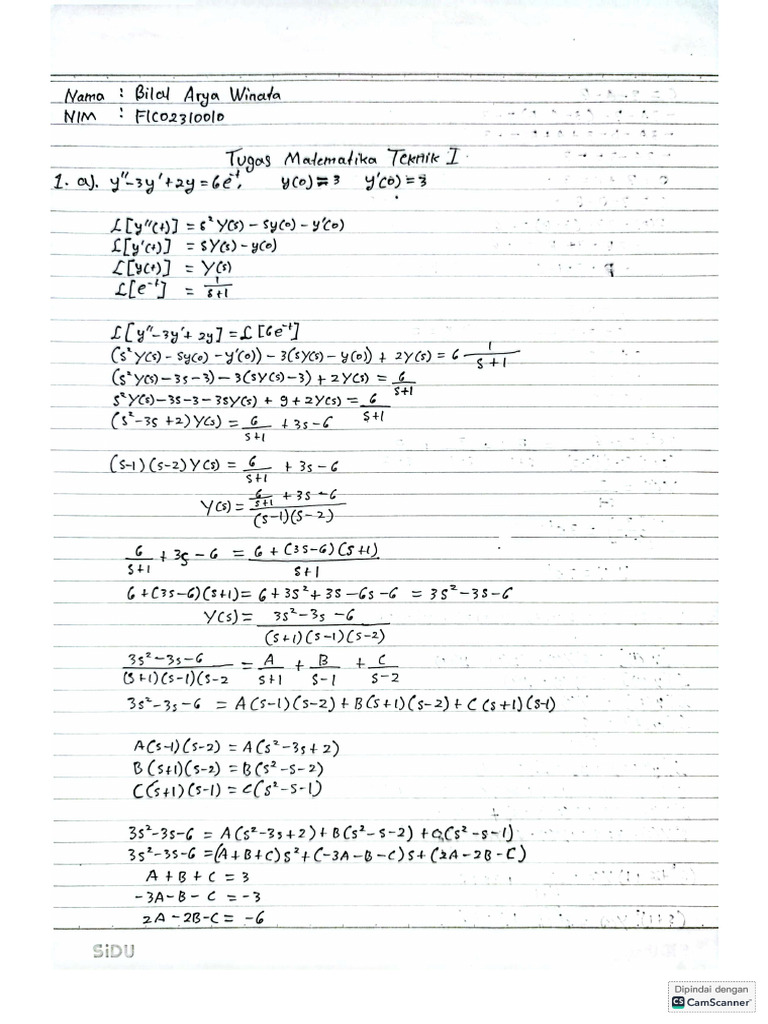 Nama : Bilal Arya Winata
NIM : F1C02310010
Tugas Matematika Teknik I
1. a). y''-3y'+2y = 6e^-t, y(0) = 3 y'(0) = 3
L[y''(t)] = s² Y(s) - sy(0) - y'(0)
L[y'(t)] = sY(s) - y(0)
L[y(t)] = Y(s)
L[e^-t] = 1/(s+1)
L[y''-3y'+2y] = L[6e^-t]
(s² Y(s) - sy(0) - y'(0)) - 3(sY(s) - y(0)) + 2Y(s) = 6 1/(s+1)
(s² Y(s) - 3s - 3) - 3(sY(s) - 3) + 2Y(s) = 6/(s+1)
s² Y(s) - 3s - 3 - 3sY(s) + 9 + 2Y(s) = 6/(s+1)
(s² - 3s + 2) Y(s) = 6/(s+1) + 3s - 6
(s-1)(s-2) Y(s) = 6/(s+1) + 3s - 6
Y(s) = (6/(s+1) + 3s - 6)/((s-1)(s-2))
6/(s+1) + 3s - 6 = (6 + (3s-6)(s+1))/(s+1)
6 + (3s-6)(s+1) = 6 + 3s² + 3s - 6s - 6 = 3s² - 3s - 6
Y(s) = (3s² - 3s - 6)/((s+1)(s-1)(s-2))
(3s² - 3s - 6)/((s+1)(s-1)(s-2) = A/(s+1) + B/(s-1) + C/(s-2)
3s² - 3s - 6 = A(s-1)(s-2) + B(s+1)(s-2) + C(s+1)(s-1)
A(s-1)(s-2) = A(s² - 3s + 2)
B(s+1)(s-2) = B(s² - s - 2)
C(s+1)(s-1) = C(s² - s - 1)
3s² - 3s - 6 = A(s² - 3s + 2) + B(s² - s - 2) + C(s² - s - 1)
3s² - 3s - 6 = (A + B + C)s² + (-3A - B - C)s + (2A - 2B - C)
A + B + C = 3
-3A - B - C = -3
2A - 2B - C = -6
SiDU
Dipindai dengan
CS CamScanner